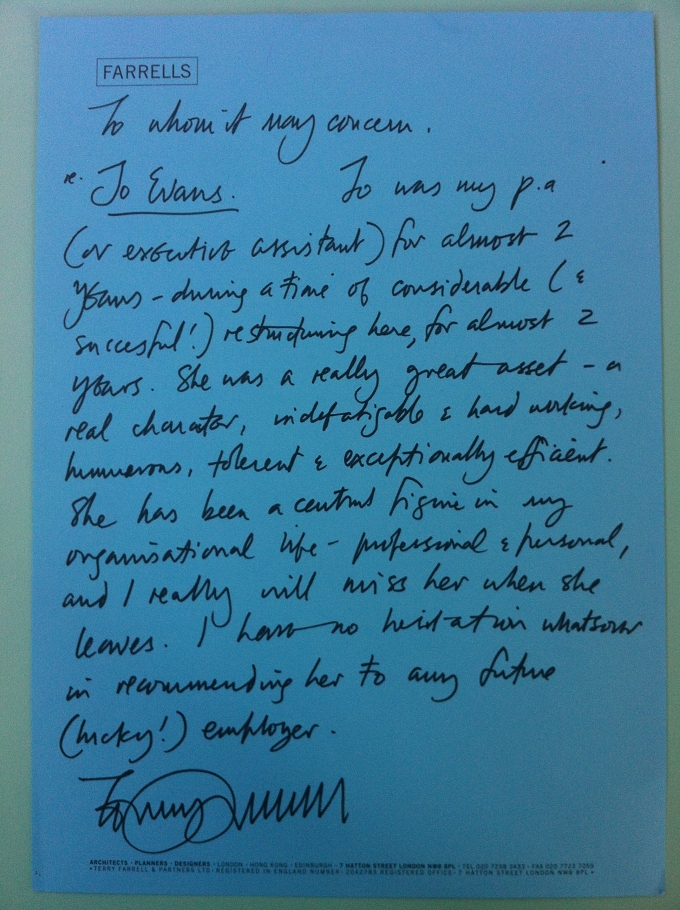 FARRELLS
To whom it may concern.
re. Jo Evans. Jo was my p.a
(or executive assistant) for almost 2
years - during a time of considerable (&
succesful!) restructuring here, for almost 2
years. She was a really great asset - a
real charater, indefatigable & hard working,
humerous, tolerent & exceptionally efficient.
She has been a central figure in my
organisational life - professional & personal,
and I really will miss her when she
leaves. I have no hesitation whatsoever
in recommending her to any future
(lucky!) employer.
ARCHITECTS · PLANNERS · DESIGNERS · LONDON · HONG KONG · EDINBURGH · 7 HATTON STREET LONDON NW8 8PL · TEL 020 7258 3433 · FAX 020 7723 7059
• TERRY FARRELL & PARTNERS LTD · REGISTERED IN ENGLAND NUMBER · 2042785 REGISTERED OFFICE · 7 HATTON STREET LONDON NW8 8PL •